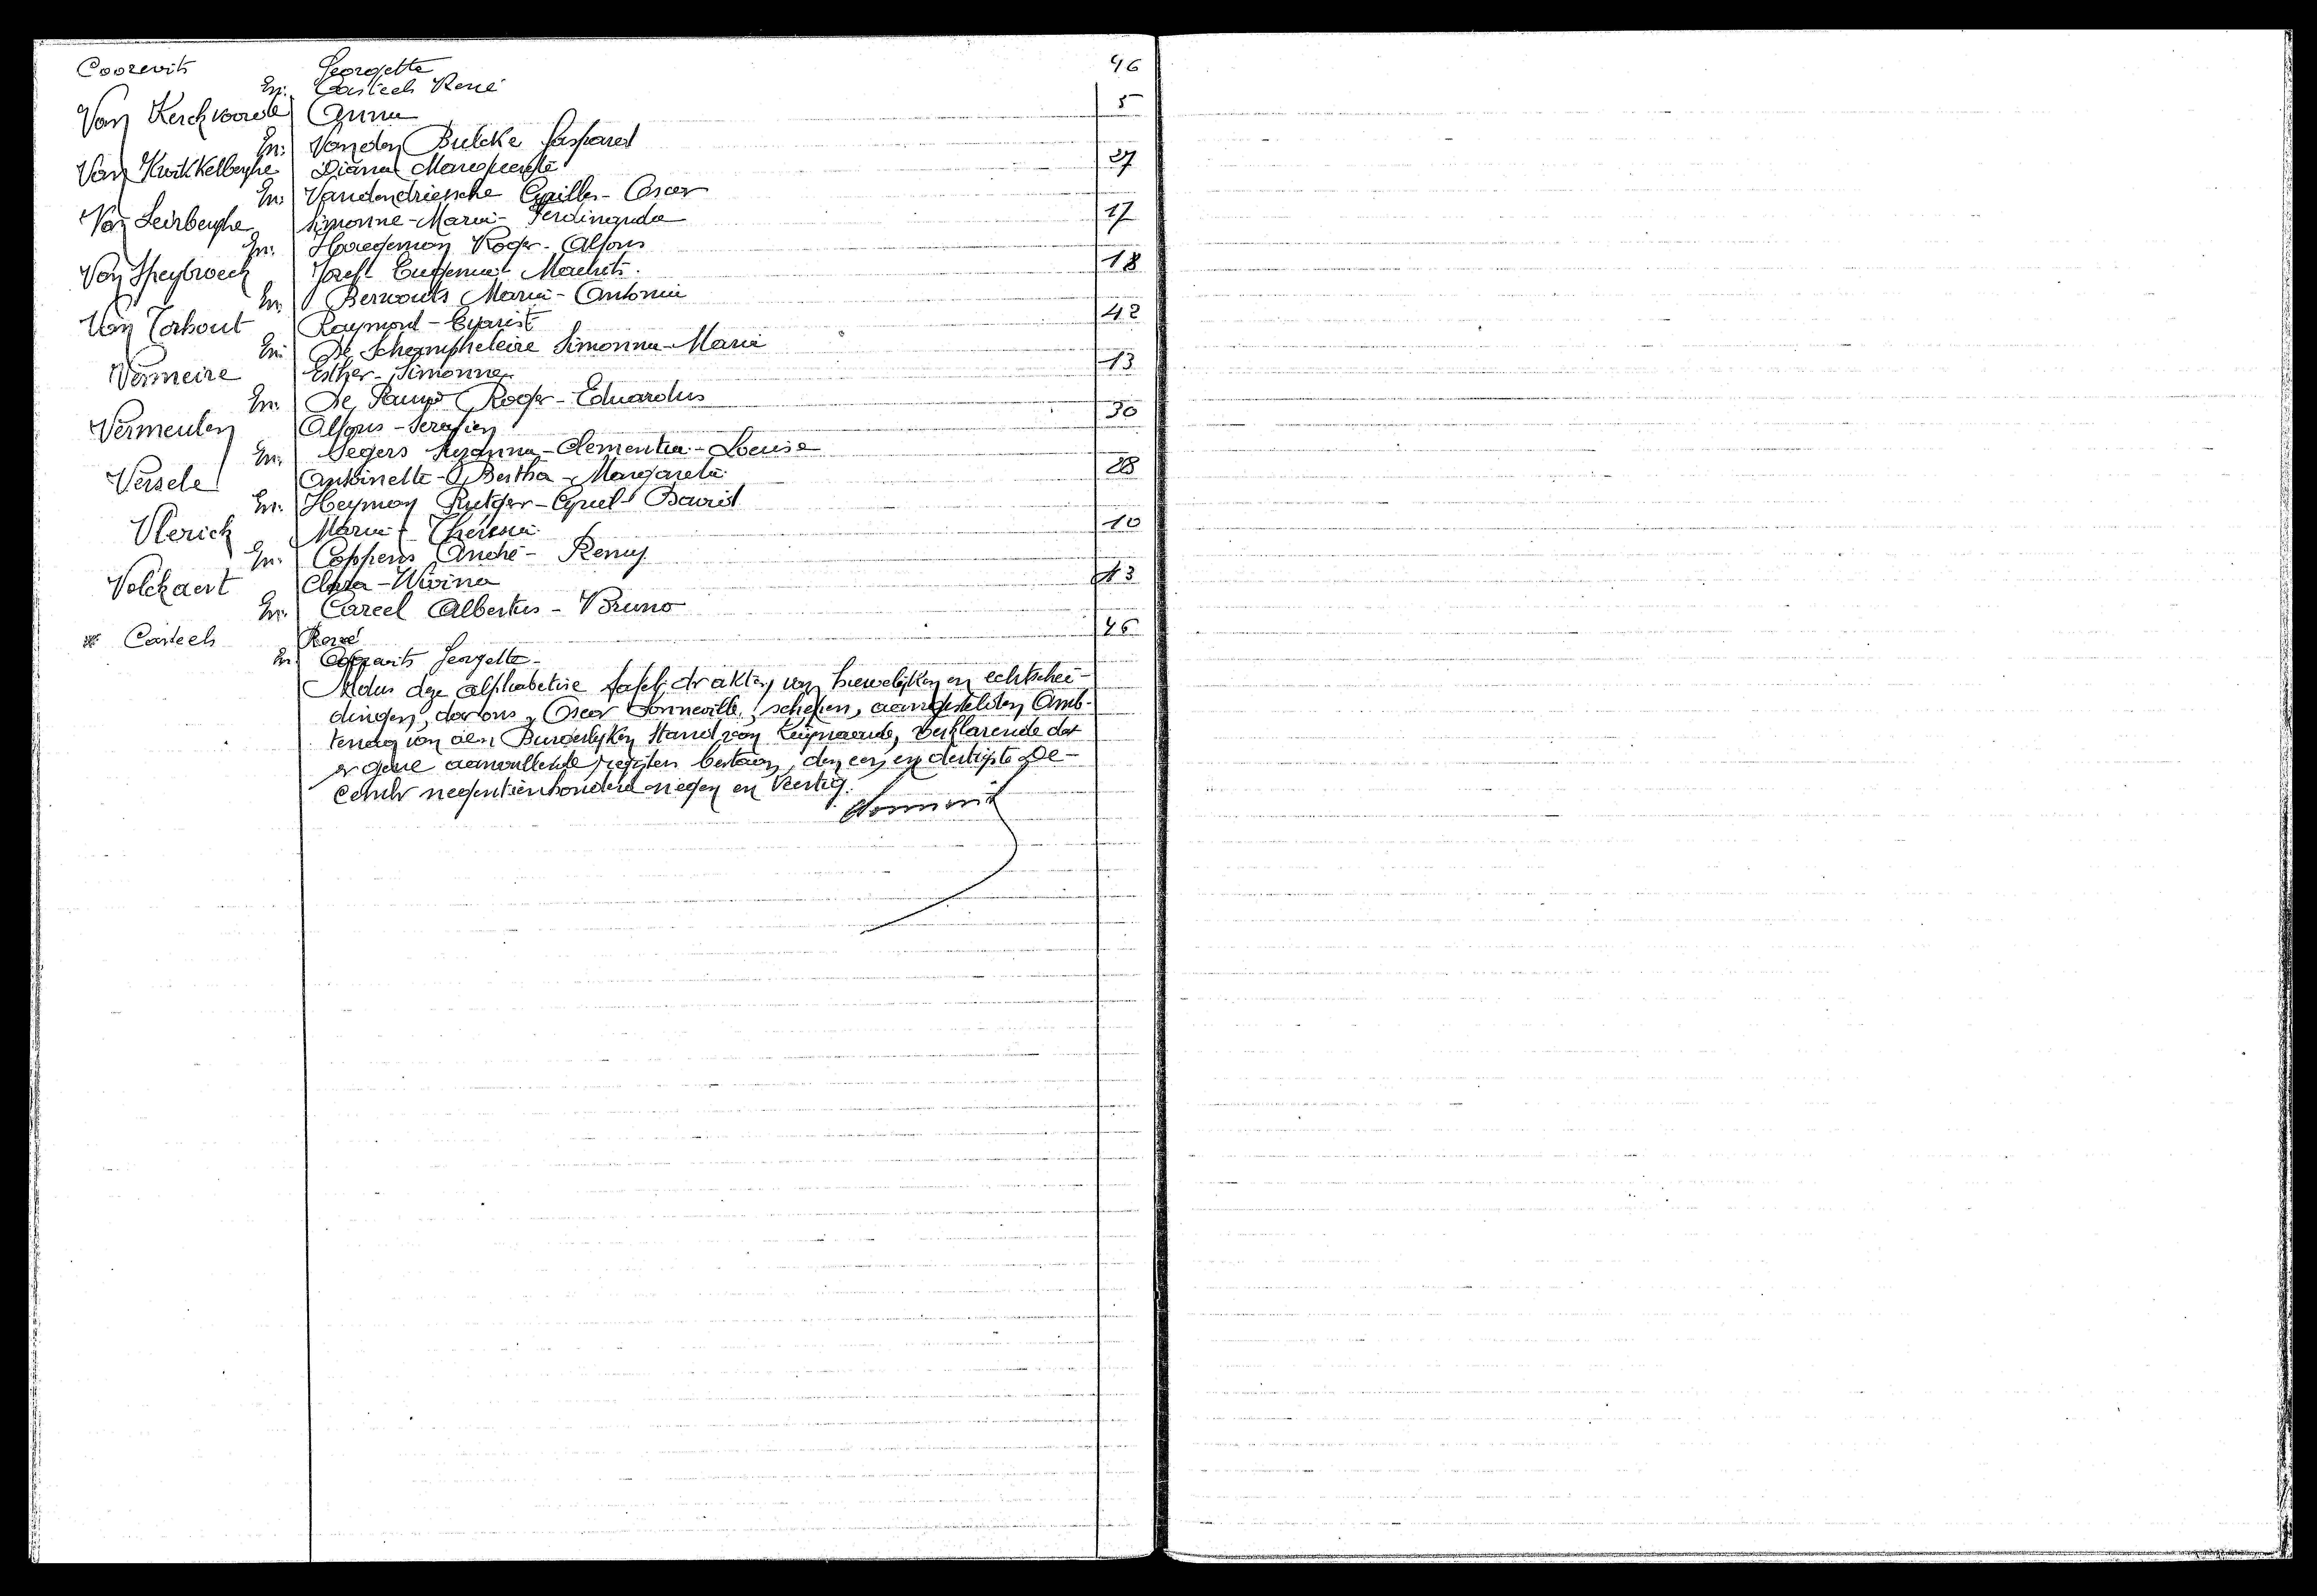 Coorevits Georgette 46
En: Casteels René
Van Kerckvoorde Anna 5
En: Vanden Bulcke Gaspard
Van Kwikkelberghe Diana Marguerite 27
En: Vandendriessche Cyrille - Oscar
Van Leirberghe Simonne - Maria - Ferdinanda 17
En: Haegeman Roger - Alfons
Van Speybroeck Jozef - Eugenia - Mauhits 18
En: Bervouts Maria - Antonia
Van Torhout Raymond - Evarist 42
En: De Schampheleire Simonna - Maria
Vermeire Esther - Simonne 13
En: De Pauw Roger - Eduardus
Vermeulen Alfons - Serafien 30
En: Segers Suzanna - Clementia - Louise
Versele Antoinette - Bertha - Margareta 28
En: Heyman Rutger - Cyriel David
Vlerick Maria - Theresia 10
En: Coppens André - Remy
Volckaert Clara - Wivina 43
En: Careel Albertus - Bruno
* Casteels René 46
En: Georgette -
Aldus deze alphabetise tafel der akten van huwelijken en echtschei-
dingen, door ons, Oscar Sonneville, schepen, aangestelden Amb-
tenaar van den Burgerlyken Stand van verklarende dat
er geene aanvullende registers bestaan, den een en dertigste De-
cember negentienhonderd negen en Veertig.